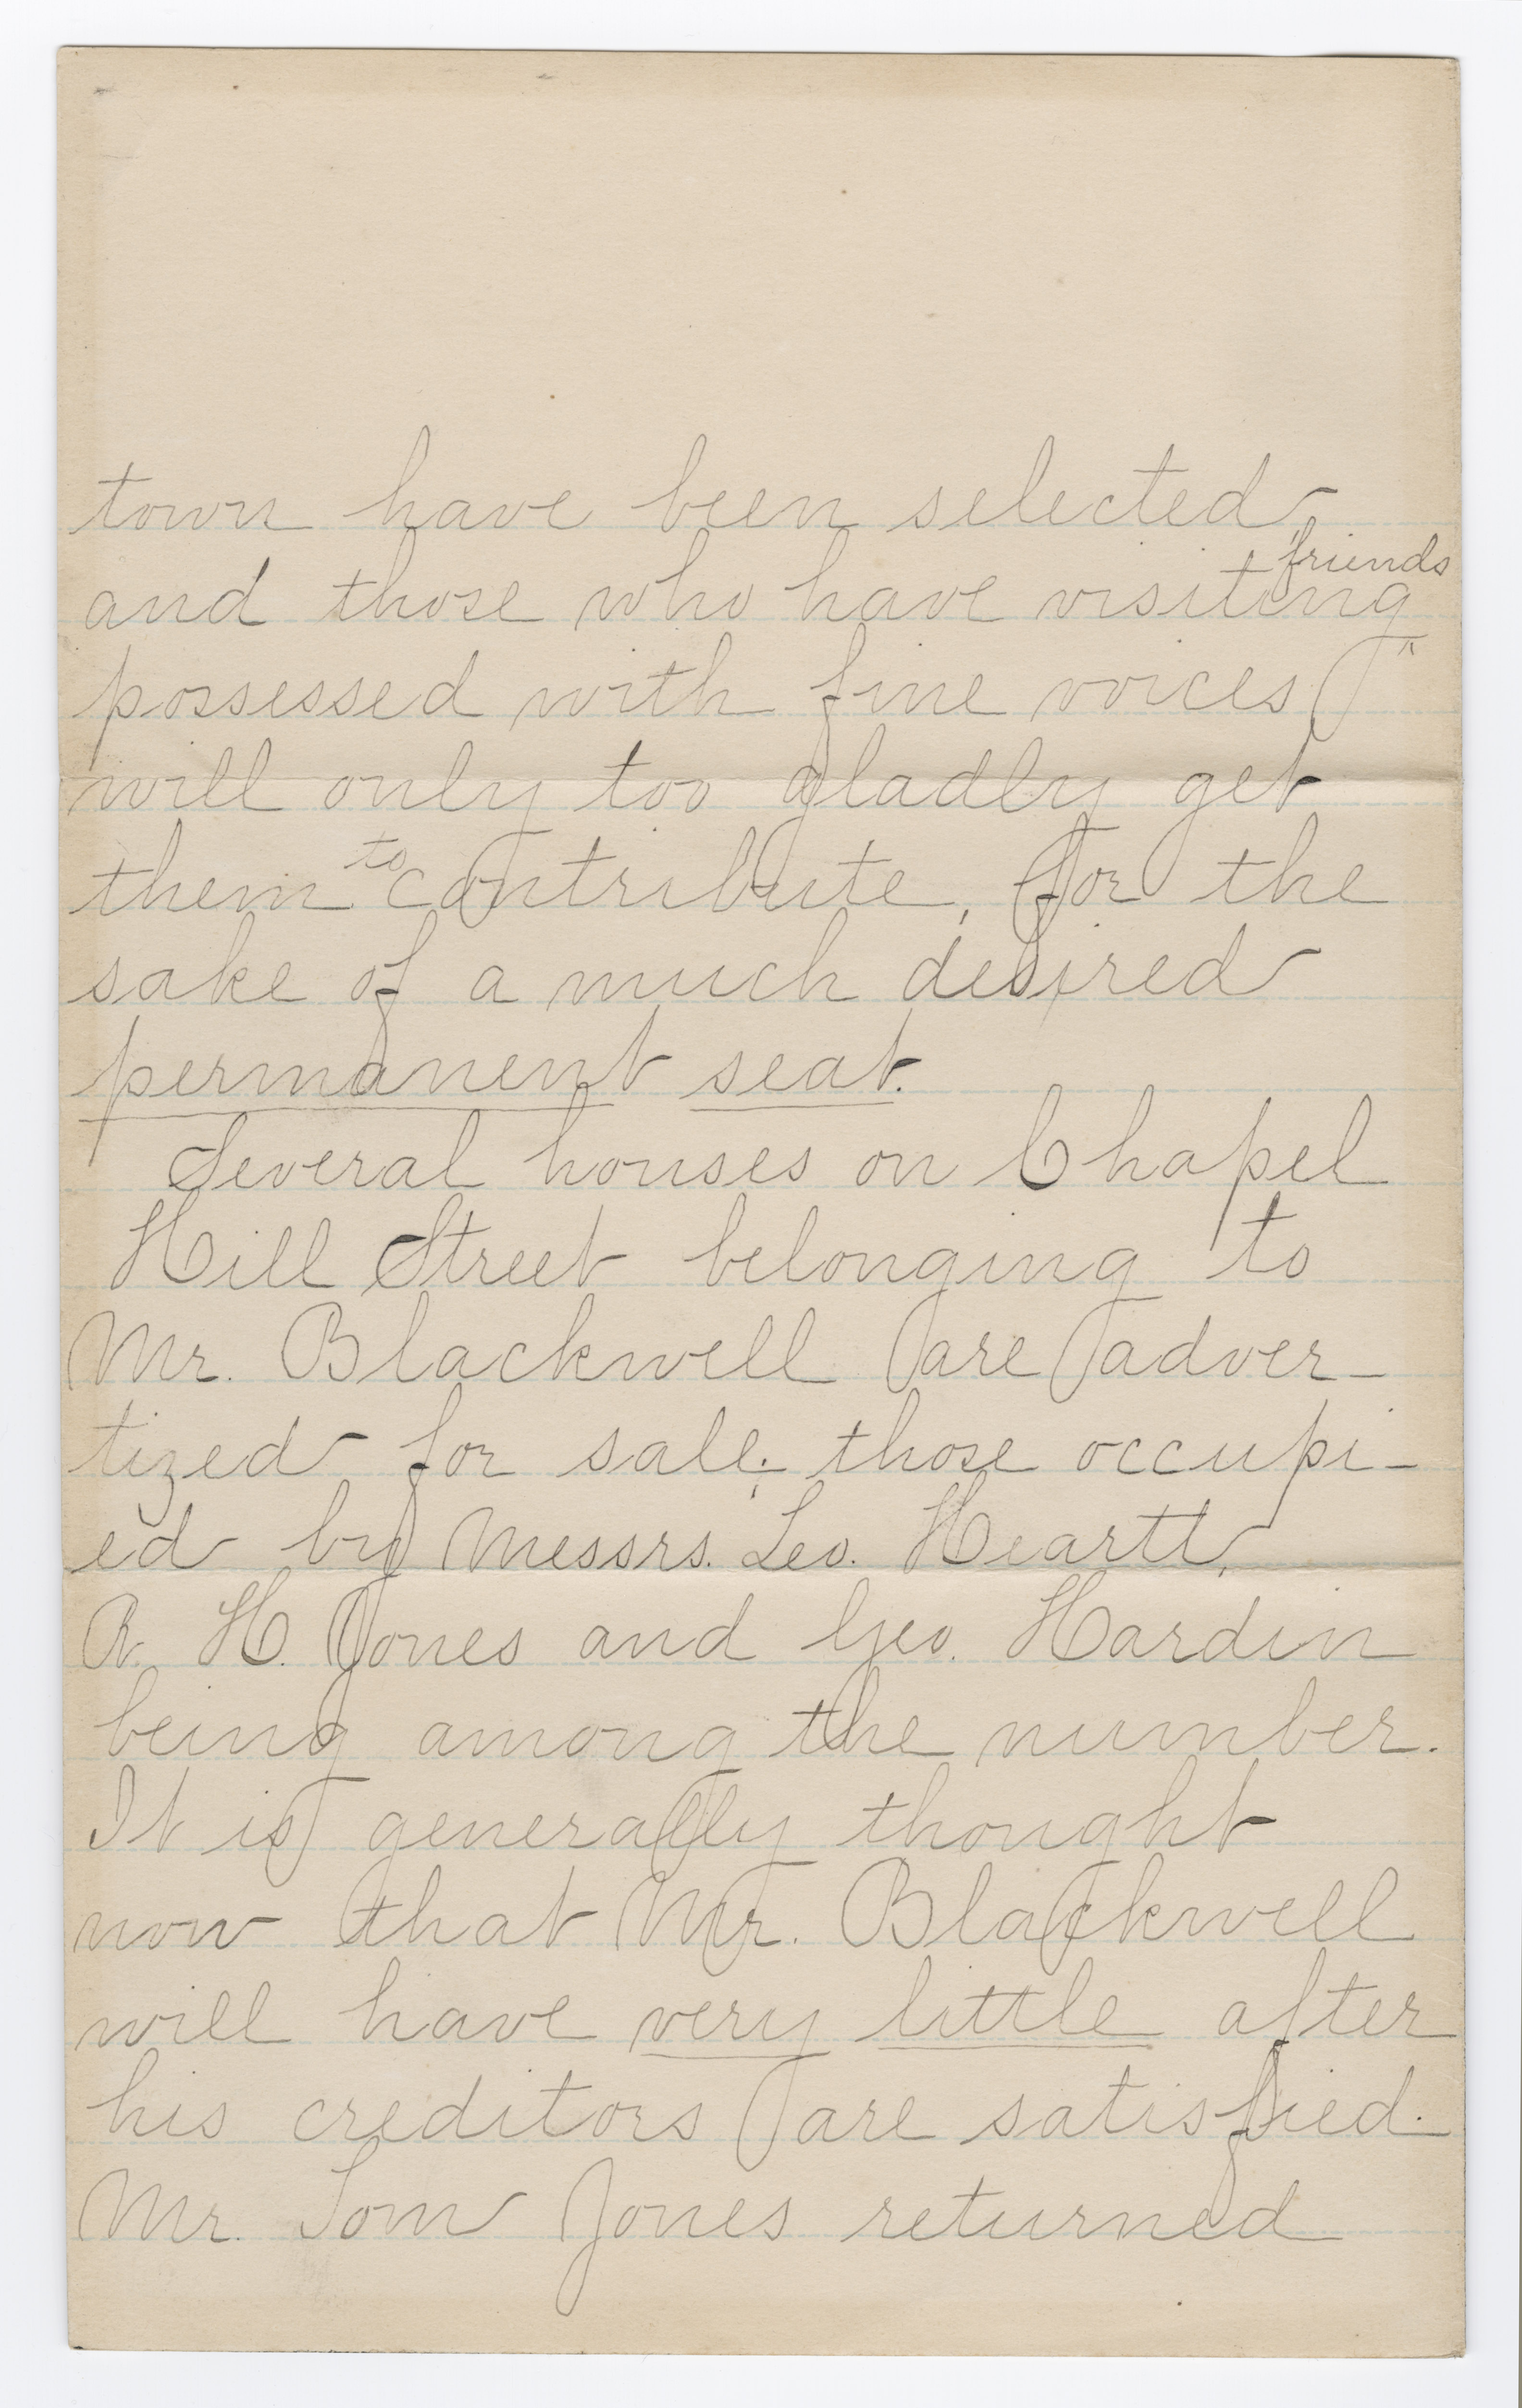 town have been selected,
and those who have visiting friends
possessed with fine voices
will only too gladly get
them to contribute, for the
sake of a much desired
permanent seat.
Several houses on Chapel
Hill Street belonging to
Mr. Blackwell are adver-
tized for sale; those occupi-
ed by Messrs. Leo. Heartt,
R. H. Jones and Geo. Hardin
being among the number.
It is generally thought
now that Mr. Blackwell
will have very little after
his creditors are satisfied.
Mr. Tom Jones returned